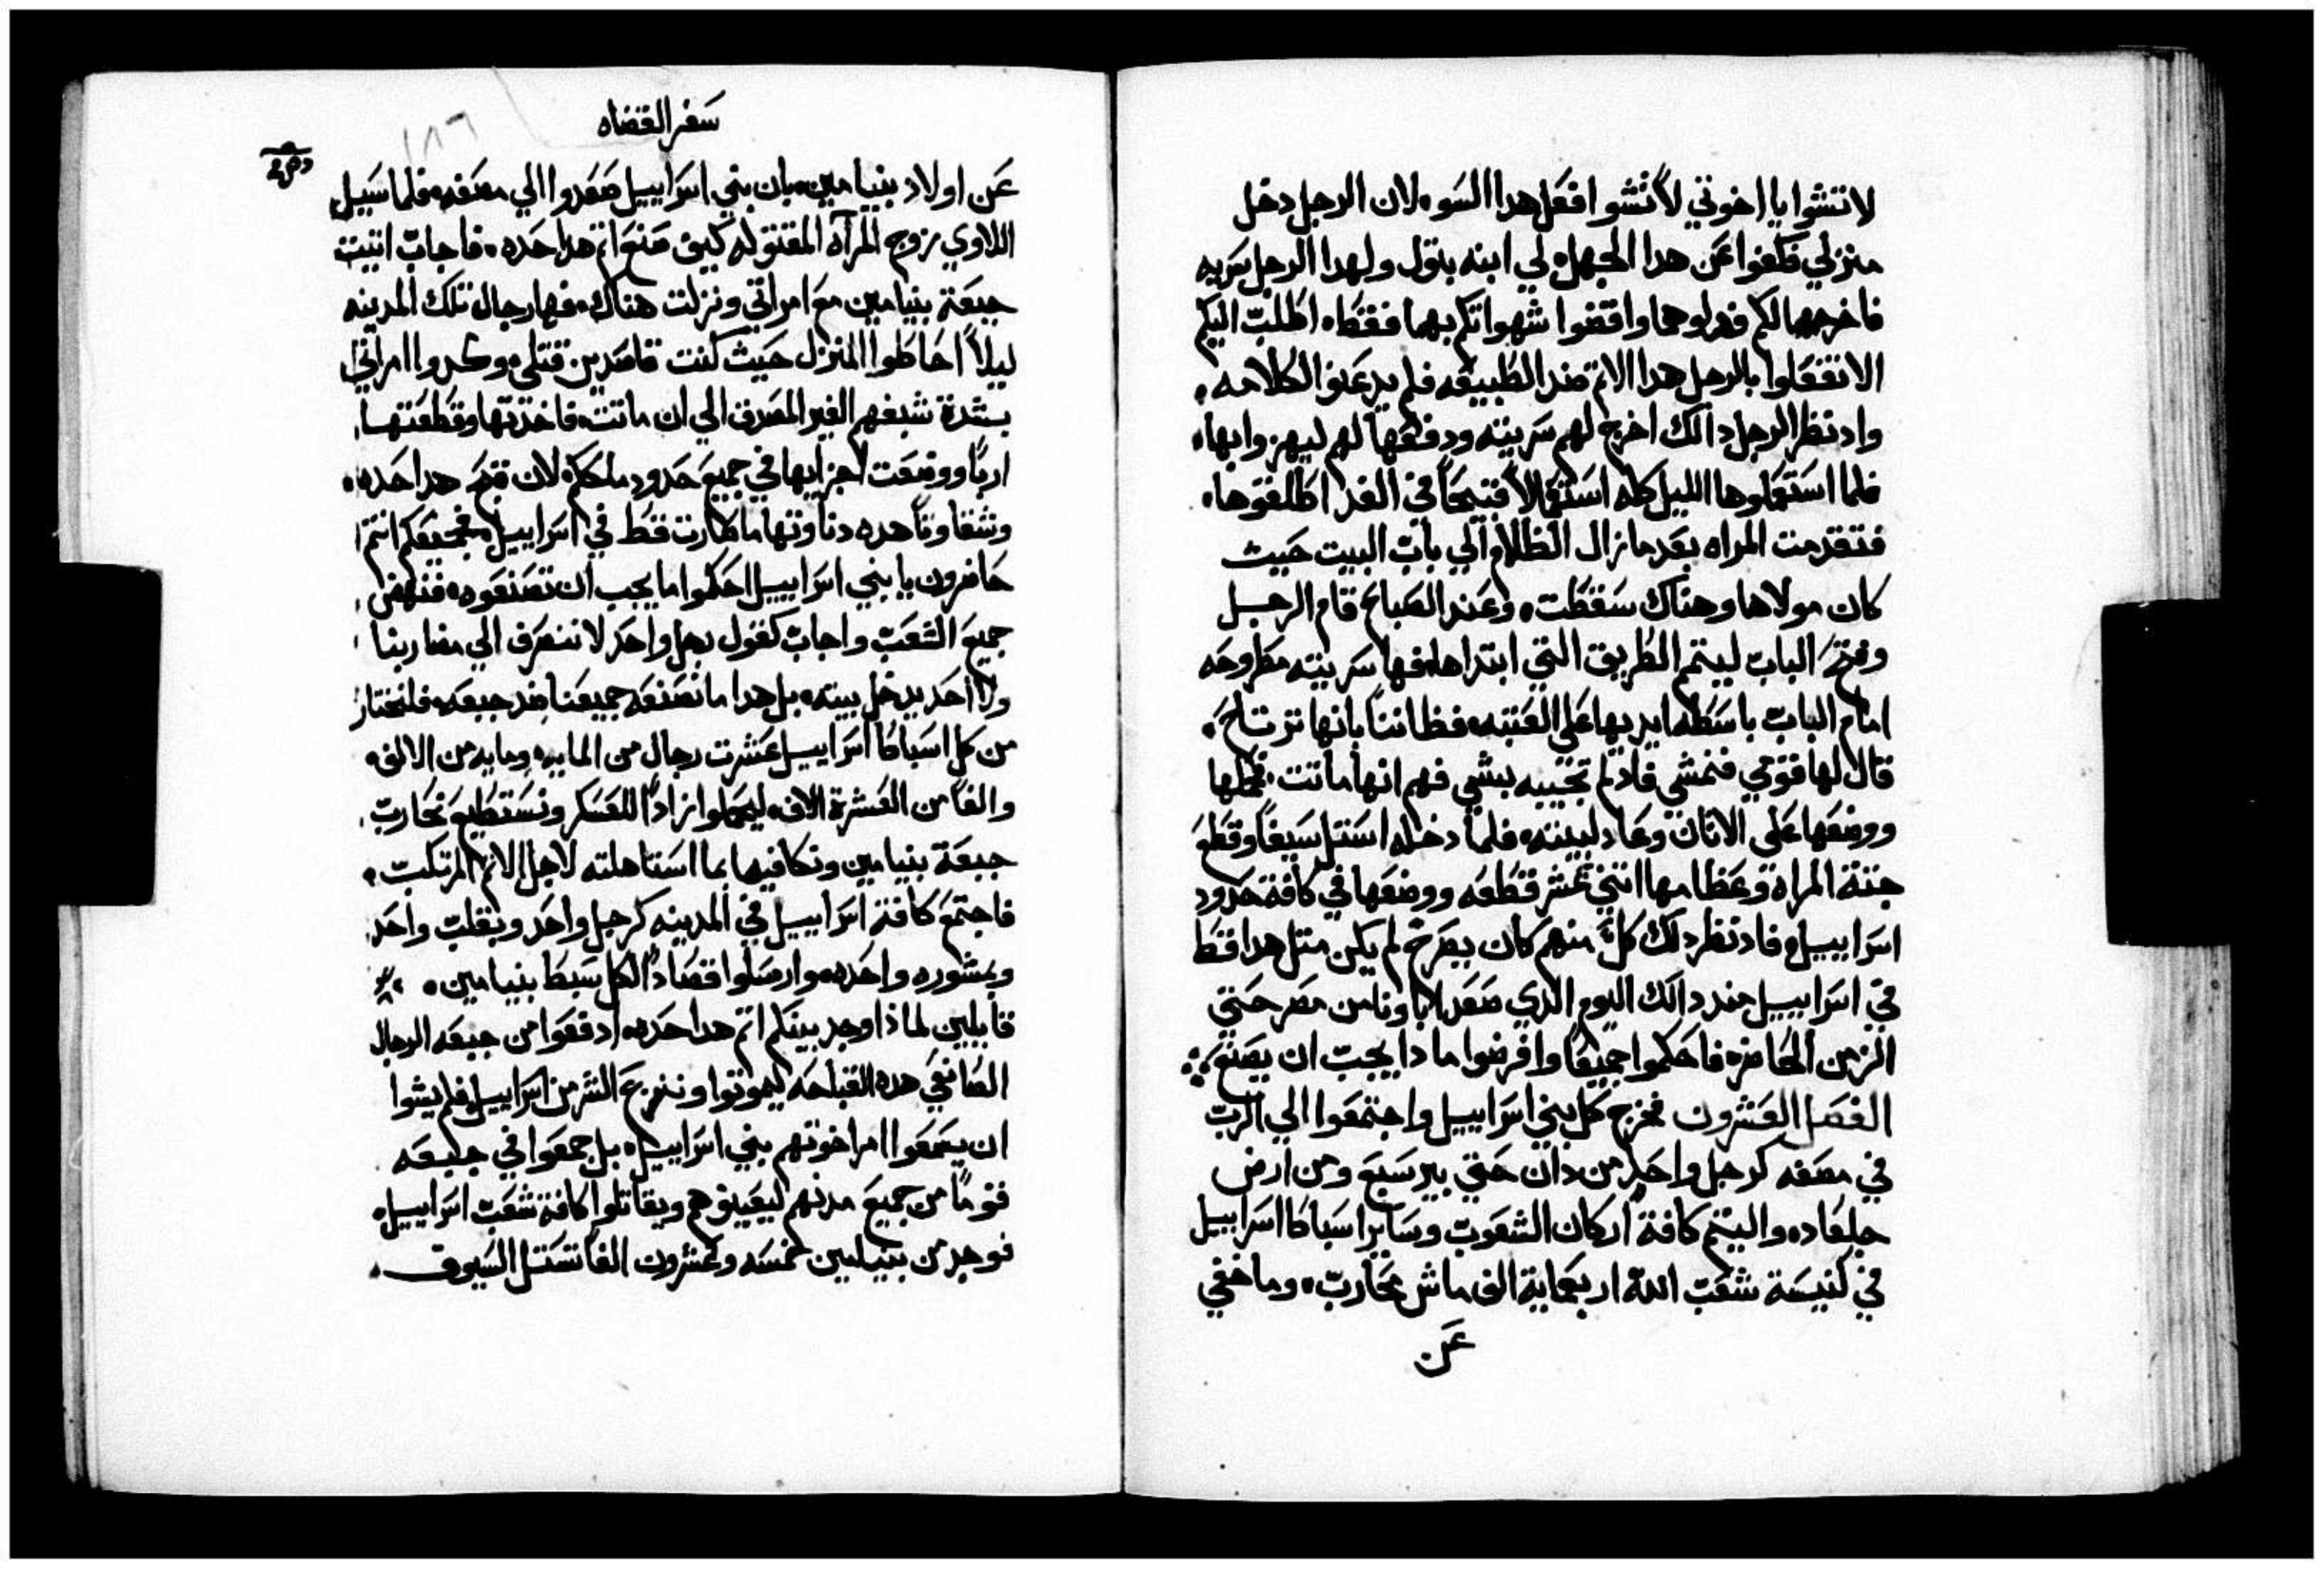 لا تشوا يا اخوتي لا تشوا فعل هدا السو، لان الرجل دخل
منزلي فكفوا عن هدا الجهل، لي ابنه بتول ولهدا الرجل سريه
فاخرجهما لكم فدلوهما واقضوا شهواتكم بهما فقط، اطلب اليكم
الا تفعلوا بالرجل هدا الاتم ضد الطبيعه فلم يدعنوا لكلامه،
واد نظر الرجل دالك اخرج لهم سريته ودفعها لهم ليهزوا بها،
فلما استعملوها الليل كله استعمالاً قبيحاً في الغد اطلقوها،
فتقدمت المراه بعد ما زال الظلام الي باب البيت حيث
كان مولاها وهناك سقطت، وعند الصباح قام الرجل
وفتح الباب ليتم الطريق التي ابتداها، فها سريته مطروحه
امام الباب باسطه ايديها علي العتبه، فظاننا بانها ترتاح،
قال لها قومي فنمشي فاد لم تجيبه بشي فهم انها ماتت، فحملها
ووضعها علي الاتان وعاد لبيته، فلما دخله استل سيفاً وقطع
جتة المراة وعظامها اتني عشر قطعه ووضعها في كافة حدود
اسراييل، فاد نظر دلك كل منهم كان يصرخ لم يكن متل هدا قط
في اسراييل مند دالك اليوم الدي صعد اباونا من مصر حتي
الزمن الحاضر، فاحكموا جميعاً وافرضوا مادا يجب ان يصنع
الفصل العشرون فخرج كل بني اسراييل واجتمعوا الي الرب
في مصفه كرجل واحد من دان حتي بير سبع ومن ارض
جلعاد، والتيم كافة اركان الشعوب وساير اسباط اسراييل
في كنيسة شعب الله اربعماية الف ماش محارب، وما خفي
عن
سفر القضاه
عن اولاد بنيامين، بان بني اسراييل صعدوا الي مصفه، فلما سيل
اللاوي زوج المرآه المقتوله كيف صنع اتم هدا حده، فاجاب اتيت
جبعة بنيامين مع امراتي ونزلت هناك، فها رجال تلك المدينه
ليلاً احاطوا المنزل حيث كنت قاصدين قتلي، وكدوا امراتي
بشدة شبقهم الغير المصدق الي ان ماتت، فاخدتها وقطعتها
ارباً ووضعت اجزايها في جميع حدود ملككم، لان قبح هدا حده،
وشقاوتاً هده دناوتها ما طارت قط في اسراييل، فجميعكم انتم
حاضرون يا بني اسراييل احكموا ما يجب ان تصنعوه، فنهض
جميع الشعب واجاب كقول رجل واحد لا ننصرف الي مضاربنا
ولا احد يدخل بيته، بل هدا ما نصنعه جميعنا ضد جبعه، فلنختار
من كل اسباط اسراييل عشرت رجال من المايه، ومايه من الالف،
والفاً من العشرة الاف، ليحملوا زاداً للعسكر ونستطيع نحارب
جبعة بنيامين ونكافيها بما استاهلته لاجل الاتم المرتكب،
فاجتمع كافة اسراييل في المدينه كرجل واحد وبقلب واحد
وبمشوره واحده، وارسلوا قصاداً لكل سبط بنيامين،
قايلين لماذا وجد بينكم اتم هدا حده، ادفعوا من جبعه الرجال
الصانعي هده القباحه ليموتوا وننزع الشر من اسراييل، فلم يشوا
ان يسمعوا امر اخوتهم بني اسراييل، بل جمعوا في جبعه
قوماً من جميع مدنهم ليعينوهم ويقاتلوا كافة شعب اسراييل،
فوجد من بنيامين خمسه وعشرون الفاً تستل السيوف